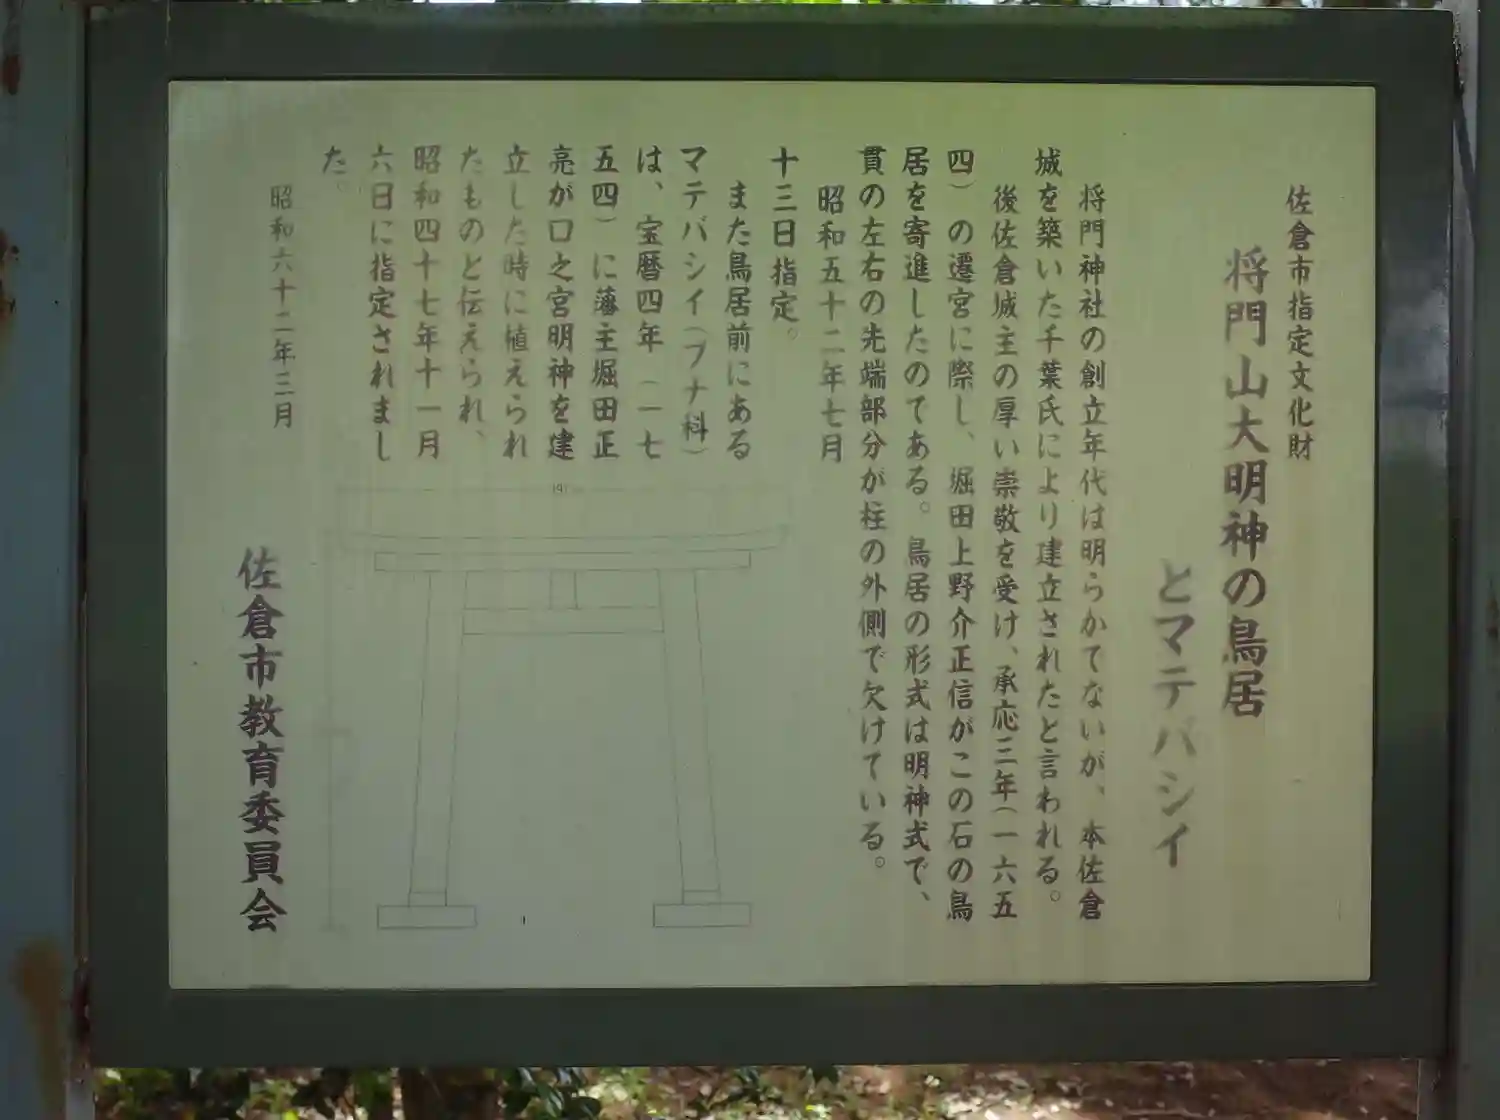 佐倉市指定文化財
将門山大明神の鳥居
とマテバシイ
将門神社の創立年代は明らかてないが、本佐倉
城を築いた千葉氏により建立されたと言われる。
後佐倉城主の厚い崇敬を受け、承応三年(一六五
四)の遷宮に際し、堀田上野介正信がこの石の鳥
居を寄進したのである。鳥居の形式は明神式で、
貫の左右の先端部分が柱の外側で欠けている。
昭和五十二年七月
十三日指定。
また鳥居前にある
マテバシイ(ブナ科)
は、宝暦四年(一七
五四)に藩主堀田正
亮が口之宮明神を建
立した時に植えられ
たものと伝えられ、
昭和四十七年十一月
六日に指定されまし
た。
昭和六十二年三月
佐倉市教育委員会